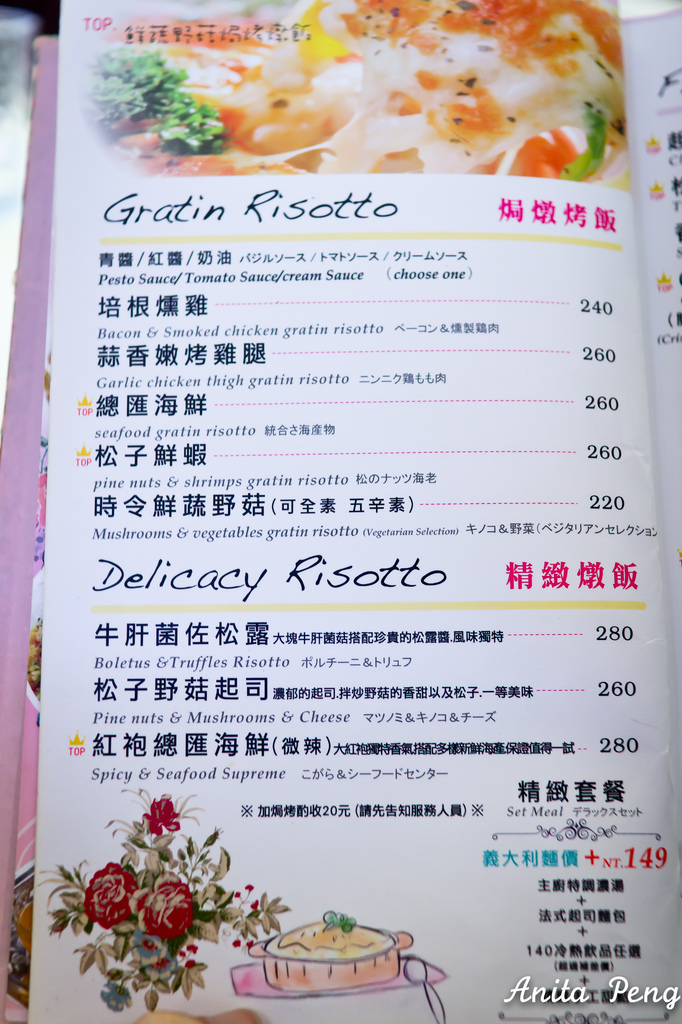 TOP. 鮮蔬野菇焗烤燉飯
Gratin Risotto 焗燉烤飯
青醬/紅醬/奶油 バジルソース/トマトソース/クリームソース
Pesto Sauce/ Tomato Sauce/cream Sauce (choose one)
培根燻雞 240
Bacon & Smoked chicken gratin risotto ベーコン&燻製鶏肉
蒜香嫩烤雞腿 260
Garlic chicken thigh gratin risotto ニンニク鶏もも肉
TOP 總匯海鮮 260
seafood gratin risotto 統合さ海産物
TOP 松子鮮蝦 260
pine nuts & shrimps gratin risotto 松のナッツ海老
時令鮮蔬野菇(可全素 五辛素) 220
Mushrooms & vegetables gratin risotto (Vegetarian Selection) キノコ&野菜(ベジタリアンセレクション
Delicacy Risotto 精緻燉飯
牛肝菌佐松露 大塊牛肝菌菇搭配珍貴的松露醬.風味獨特 280
Boletus &Truffles Risotto ポルチーニ&トリュフ
松子野菇起司 濃郁的起司.拌炒野菇的香甜以及松子.一等美味 260
Pine nuts & Mushrooms & Cheese マツノミ&キノコ&チーズ
TOP 紅袍總匯海鮮(微辣) 大紅袍獨特香氣,搭配多樣新鮮海產,保證值得一試 280
Spicy & Seafood Supreme こがら&シーフードセンター
※ 加焗烤酌收20元 (請先告知服務人員) ※
精緻套餐
Set Meal デラックスセット
義大利麵價 +NT.149
主廚特調濃湯
+
法式起司麵包
+
140冷熱飲品任選
(超過補差價)
+
Anita Peng